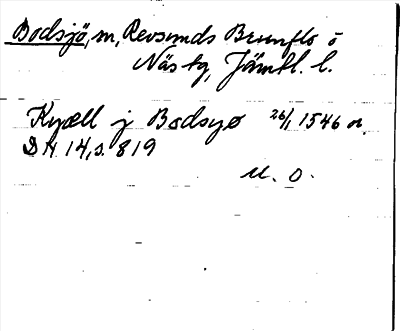 Bodsjö, m, Revsunds Brunflo o
Näs tg, Jämtl. l.
Kyæll j Bodsyø 26/1 1546 or.
DN 14, s. 819
M. O.